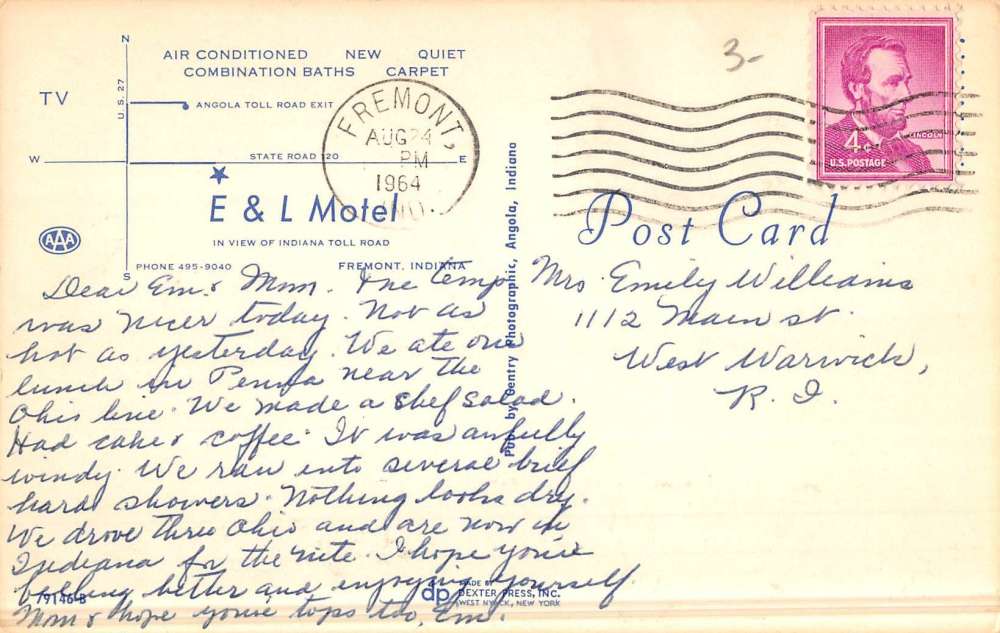 AIR CONDITIONED NEW QUIET
COMBINATION BATHS CARPET
TV
N
U.S. 27
ANGOLA TOLL ROAD EXIT
W
STATE ROAD 120
E
E & L Motel
IN VIEW OF INDIANA TOLL ROAD
AAA
S
PHONE 495-9040
FREMONT, INDIANA
FREMONT,
AUG 24
PM
1964
IND.
3-
LINCOLN
4¢
U.S. POSTAGE
Post Card
Pub. by Gentry Photographic, Angola, Indiana
Dear Em. & Mom. The temp
was nicer today. Not as
hot as yesterday. We ate our
lunch in Penna near the
Ohio line. We made a chef salad.
Had cake & coffee. It was awfully
windy. We ran into several brief
hard showers. Nothing looks dry.
We drove thru Ohio and are now in
Indiana for the nite. I hope you're
feeling better and enjoying yourself
Mom & hope you're tops too, Em.
Mrs Emily Williams
1112 Main st.
West Warwick,
R. I.
79146-B
dp
MADE BY
DEXTER PRESS, INC.
WEST NYACK, NEW YORK